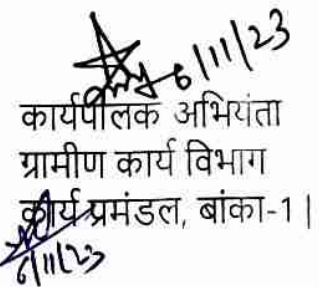 6/11/23
कार्यपालक अभियंता
ग्रामीण कार्य विभाग
कार्य प्रमंडल, बांका-1 |
6/11/23